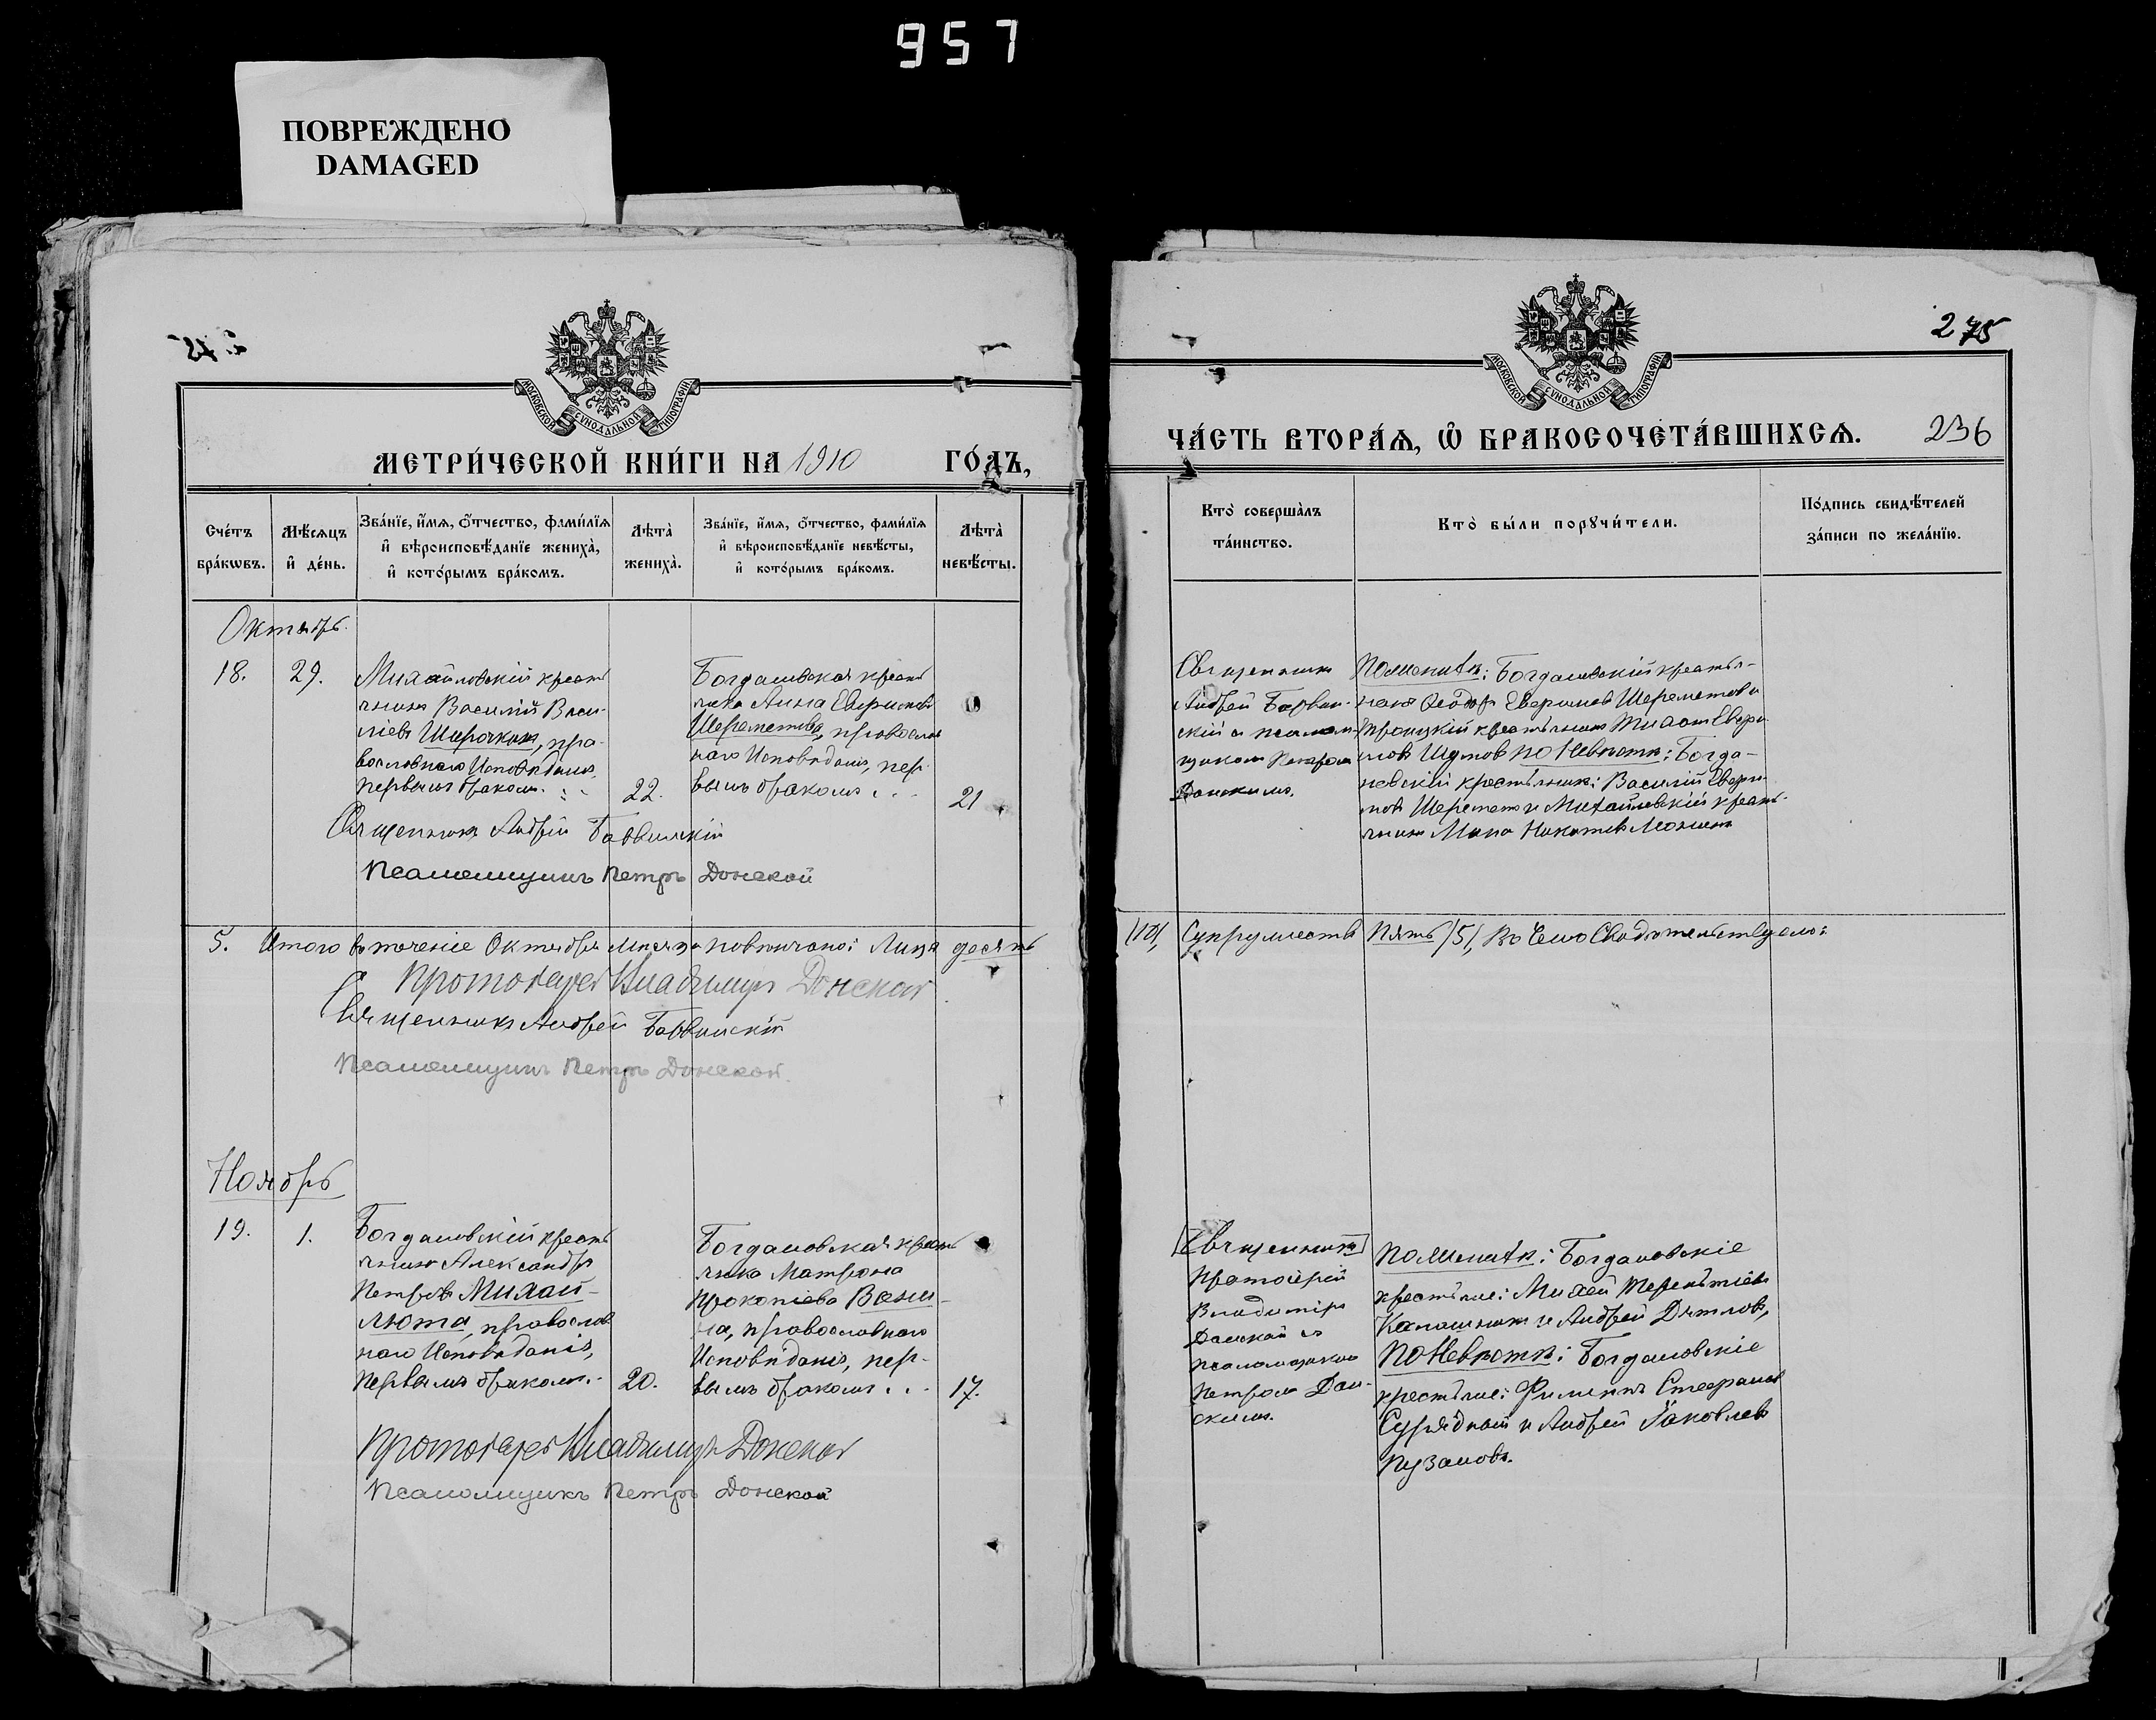 957
ПОВРЕЖДЕНО
DAMAGED
МОСКОВСКОЙ СУНОДАЛЬНОЙ ТИПОГРАФІИ
МЕТРИ́ЧЕСКОЙ КНИ́ГИ НА 1910 ГО́ДЪ,
Сче́тъ бра́кѡвъ.
Мѣ́сѧцъ и҆ де́нь.
Зва́нїе, и҆́мѧ, ѻ҆́тчество, фами́лїѧ
и҆ вѣроисповѣ́данїе жениха̀,
и҆ кото́рымъ бра́комъ.
Лѣ́та̀ жениха̀.
Зва́нїе, и҆́мѧ, ѻ҆́тчество, фами́лїѧ
и҆ вѣроисповѣ́данїе невѣ́сты,
и҆ кото́рымъ бра́комъ.
Лѣ́та̀ невѣ́сты.
Октябрь.
18.
29.
Михайловскій кресть
янинъ Василій Васи-
ліевъ Широкихъ, пра-
вославнаго Исповѣданія,
первымъ бракомъ.
22.
Богдановская кресть
янка Анна
Шереметова, православ
наго Исповѣданія, пер-
вымъ бракомъ
21
Священникъ Андрей Барвинскій
Псаломщикъ Петръ Донской
5. Итого въ теченіе Октября мѣсяца повѣнчано: Лица десять
Протоіерей Владимиръ Донской
Священникъ Андрей Барвинскій
Псаломщикъ Петръ Донской.
Ноябрь
19.
1.
Богдановскій кресть
янинъ Александръ
Петровъ Михай-
люта, православ
наго Исповѣданія,
первымъ бракомъ.
20.
Богдановская кресть
янка Матрона
Прокопіева Важи-
на, православнаго
Исповѣданія, пер-
вымъ бракомъ
17.
Протоіерей Владимиръ Донской
Псаломщикъ Петръ Донской
МОСКОВСКОЙ СУНОДАЛЬНОЙ ТИПОГРАФІИ
275
ЧА́СТЬ ВТОРА́Ѧ, Ѽ БРАКОСОЧЕТА́ВШИХСѦ.
236
Кто̀ соверша̀лъ
та́инство.
Кто̀ бы́ли порꙋчи́тели.
По́дпись свидѣ́телей
за́писи по жела́нїю.
Священникъ
Андрей Барвин-
скій съ псалом-
щикомъ Петромъ
Донскимъ.
По женихѣ: Богдановскій крестья-
нинъ Ѳеодоръ Шереметовъ и
крестьянинъ
по Невѣстѣ: Богда-
новскій крестьянинъ: Василій
Шереметовъ и Михайловскій кресть-
янинъ
/10/, Супружествъ Пять /5/, Въ чемъ Свидѣтельствуемъ:
[Священникъ]
Протоіерей
Владиміръ
Донской съ
псаломщикомъ
Петромъ Дон-
скимъ.
По женихѣ: Богдановскіе
крестьяне: Михей Терентіевъ
и Андрей Дятловъ,
по Невѣстѣ: Богдановскіе
крестьяне: Филиппъ Стефановъ
и Андрей Іаковлевъ
Пузановъ.